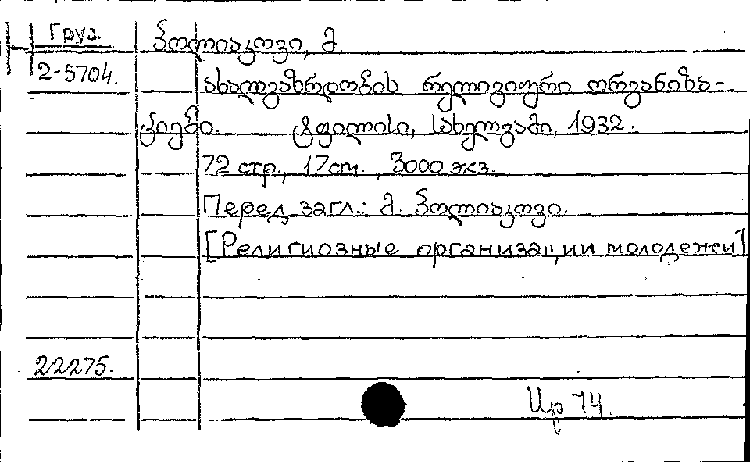 Груз.
2-5704.
პოლიაკოვი, მ
ახალგაზრდობის რელიგიური ორგანიზა-
ციები. ტფილისი, სახელგამი, 1932.
72 стр., 17 ст., 3000 экз.
Перед загл.: მ. პოლიაკოვი.
[Религиозные организации молодежи]
22275.
74.